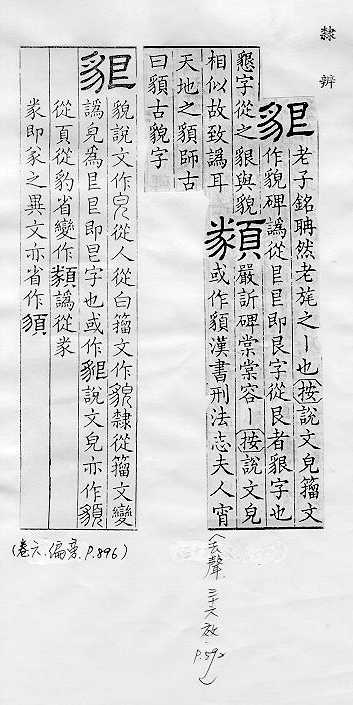 隸辨
貇
老子銘聃然老旄之丨也按說文皃籀文
作貌碑譌從㠯㠯即艮字從艮者貇字也
懇字從之貇與貌
相似故致譌耳
䫉
嚴訢碑棠棠容丨按說文皃
或作䫉漢書刑法志夫人宵
天地之䫉師古
曰䫉古貌字
(去聲.三十六效.P.592)
貇
貌說文作皃從人從白籀文作貌隸從籀文變
譌皃爲㠯㠯即㠯字也或作貇說文皃亦作䫉
從頁從豹省變作䫉譌從豖
豖即豸之異文亦省作䫉
(卷六.偏旁.P.896)